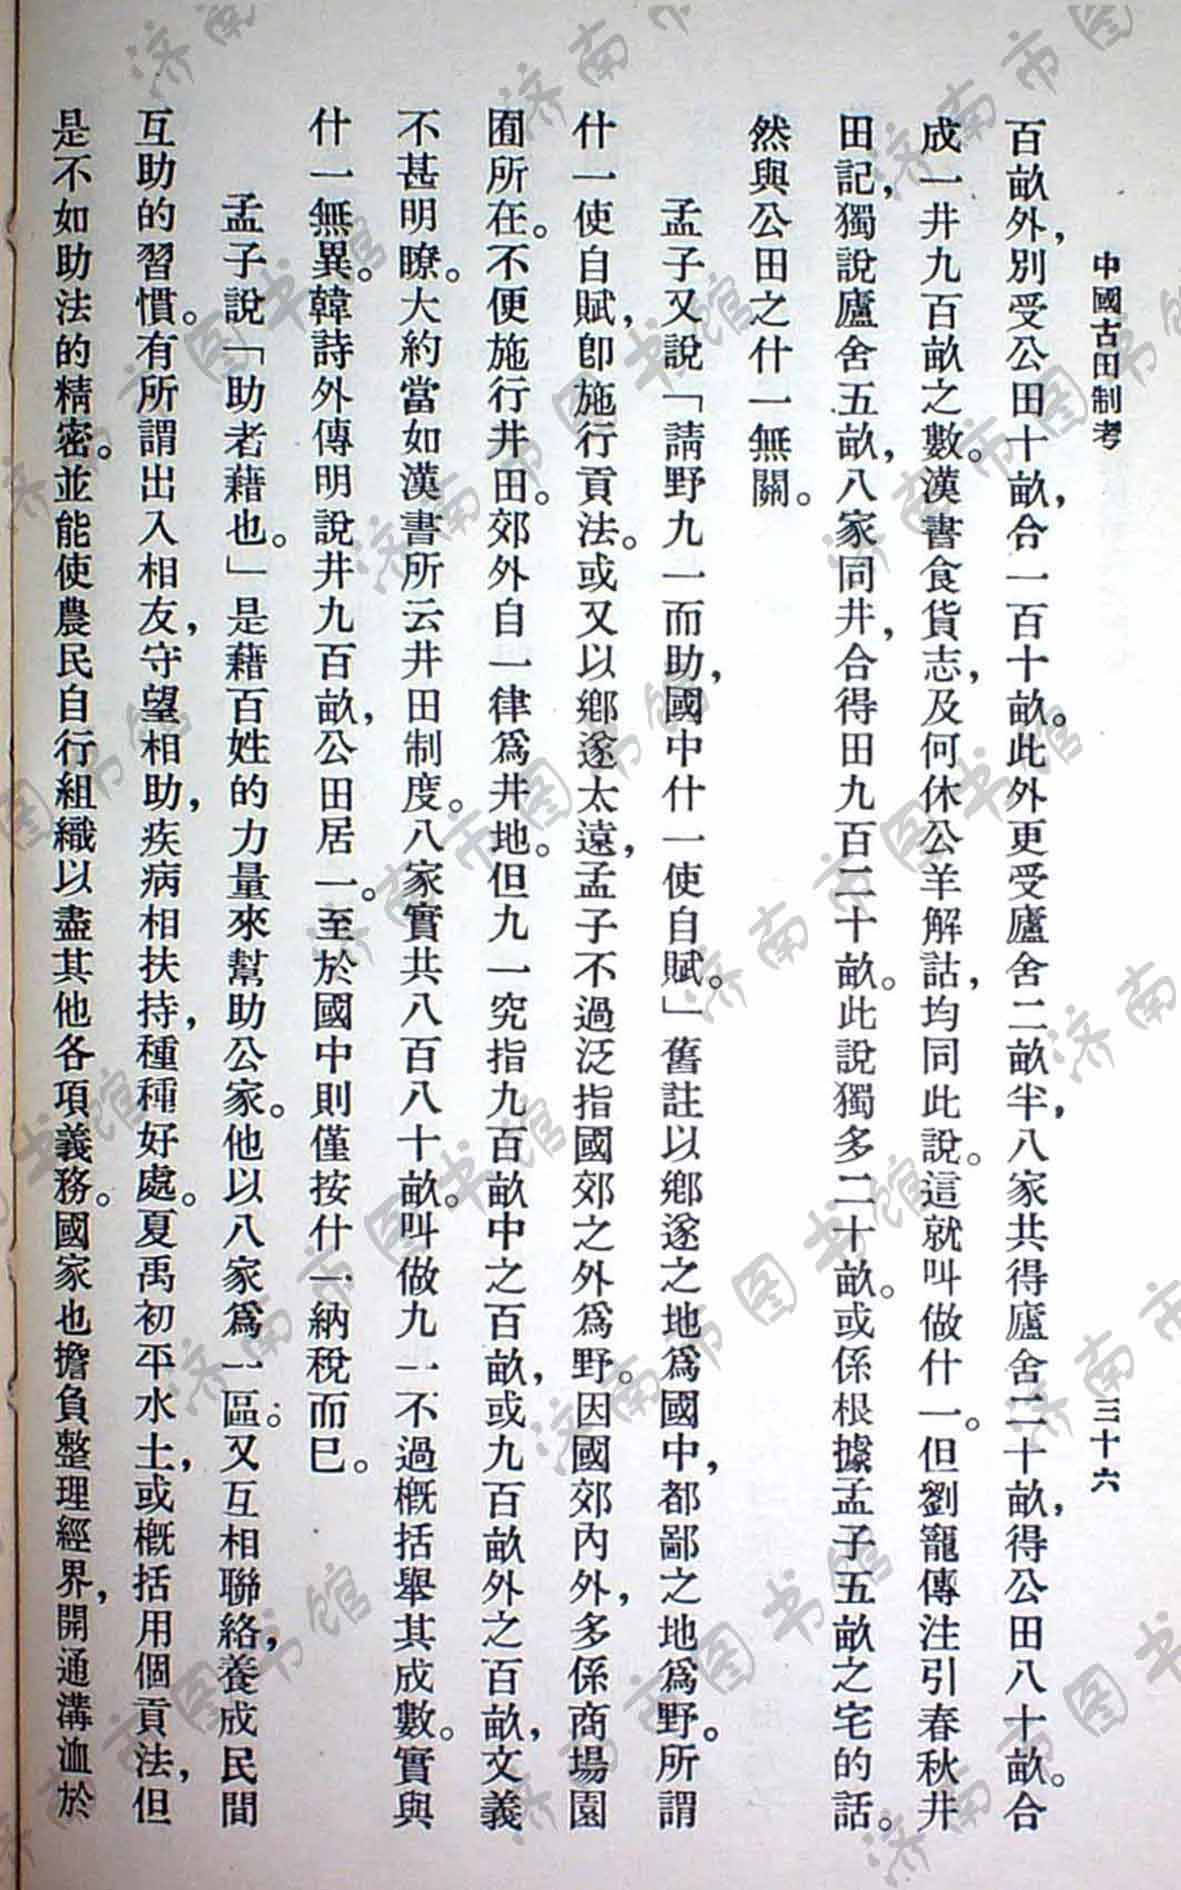 中國古田制考
三十六
百畝外，別受公田十畝，合一百十畝。此外更受廬舍二畝半，八家共得廬舍二十畝，得公田八十畝。合
成一井九百畝之數。漢書食貨志，及何休公羊解詁，均同此說。這就叫做什一。但劉寵傳注引春秋井
田記，獨說廬舍五畝，八家同井，合得田九百二十畝。此說獨多二十畝。或係根據孟子五畝之宅的話。
然與公田之什一無關。
孟子又說「請野九一而助，國中什一使自賦。」舊註以鄉遂之地爲國中，都鄙之地爲野。所謂
什一使自賦，卽施行貢法。或又以鄉遂太遠，孟子不過泛指國郊之外爲野。因國郊內外，多係商場園
囿所在。不便施行井田。郊外自一律爲井地。但九一究指九百畝中之百畝，或九百畝外之百畝，文義
不甚明瞭。大約當如漢書所云井田制度。八家實共八百八十畝。叫做九一不過概括舉其成數。實與
什一無異。韓詩外傳明說井九百畝，公田居一。至於國中則僅按什一納稅而已。
孟子說「助者藉也。」是藉百姓的力量來幫助公家。他以八家爲一區。又互相聯絡，養成民間
互助的習慣。有所謂出入相友，守望相助，疾病相扶持，種種好處。夏禹初平水土，或概括用個貢法，但
是不如助法的精密。並能使農民自行組織以盡其他各項義務。國家也擔負整理經界，開通溝洫於
济南市图书馆
济南市图书馆
济南市图书馆
济南市图书馆
济南市图书馆
济南市图书馆